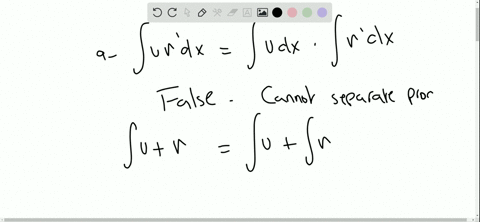 a- ∫ur'dx = ∫udx · ∫r'dx
False. Cannot separate pror
∫u+r = ∫u + ∫r